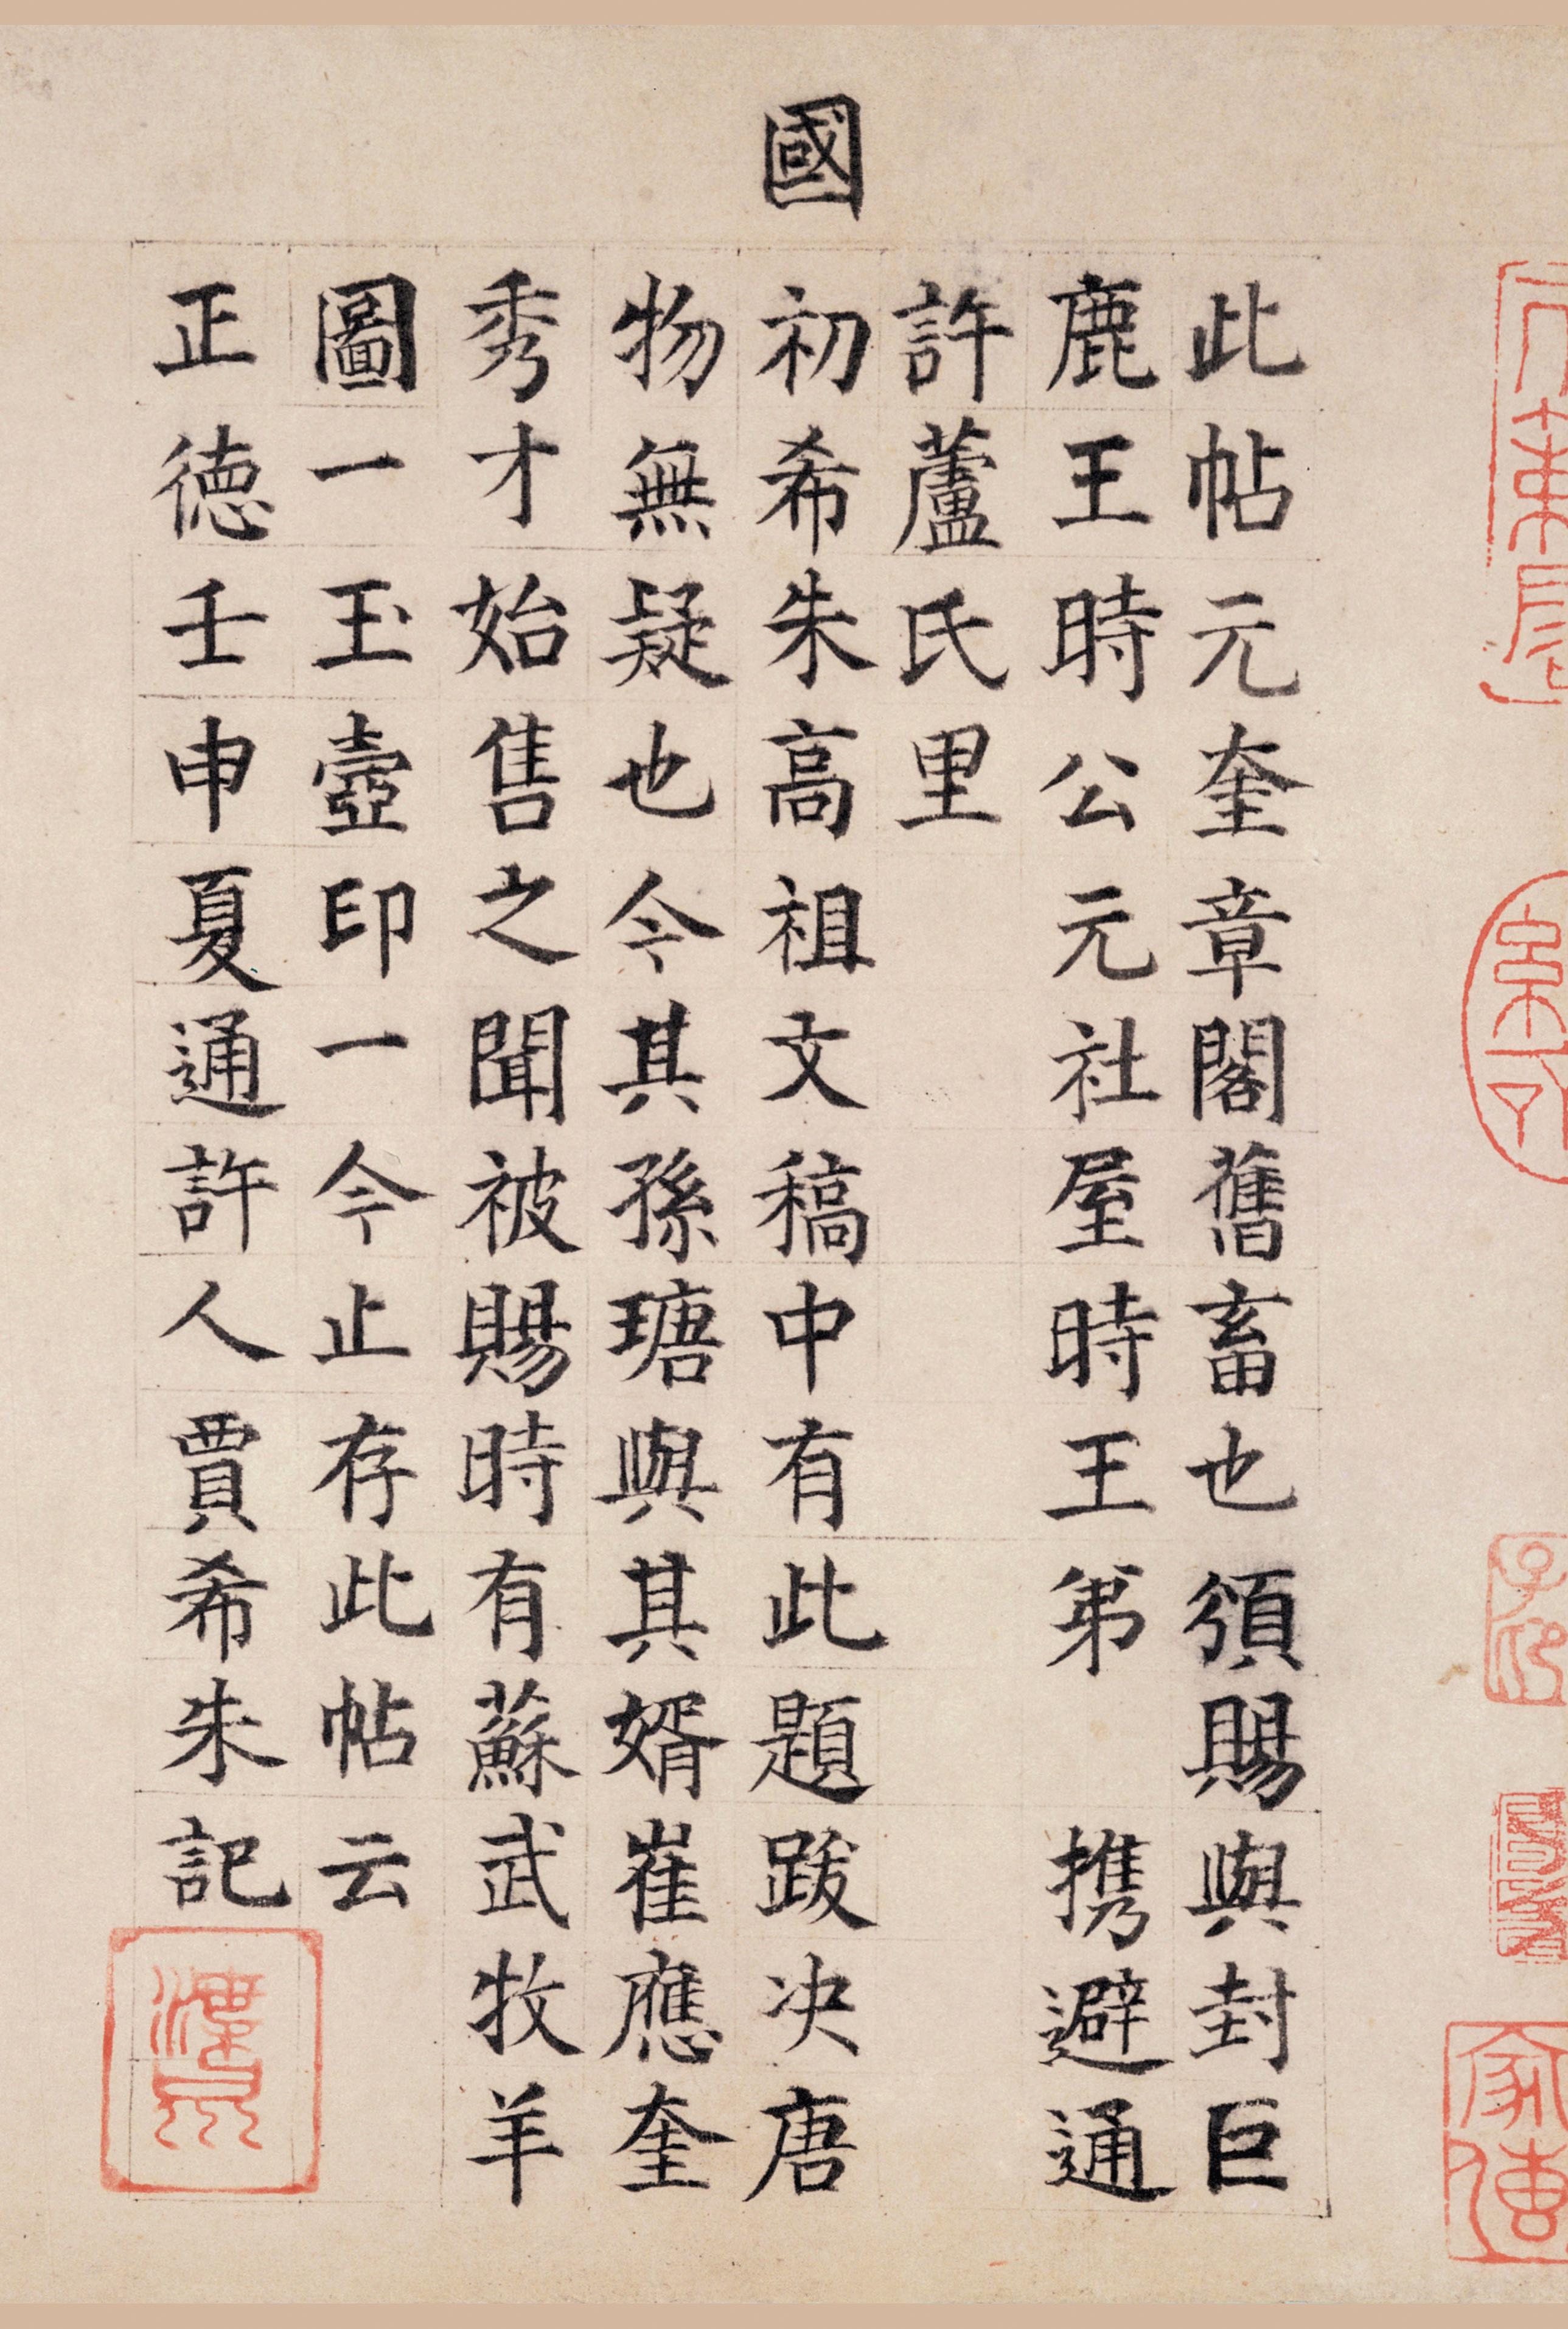 此帖元奎章閣舊畜也頒賜與封巨
鹿王時公元社屋時王弟携避通
許蘆氏里
國
初希朱高祖文稿中有此題跋决唐
物無疑也今其孫瑭與其婿崔應奎
秀才始售之聞被賜時有蘇武牧羊
圖一玉壺印一今止存此帖云
正德壬申夏通許人賈希朱記